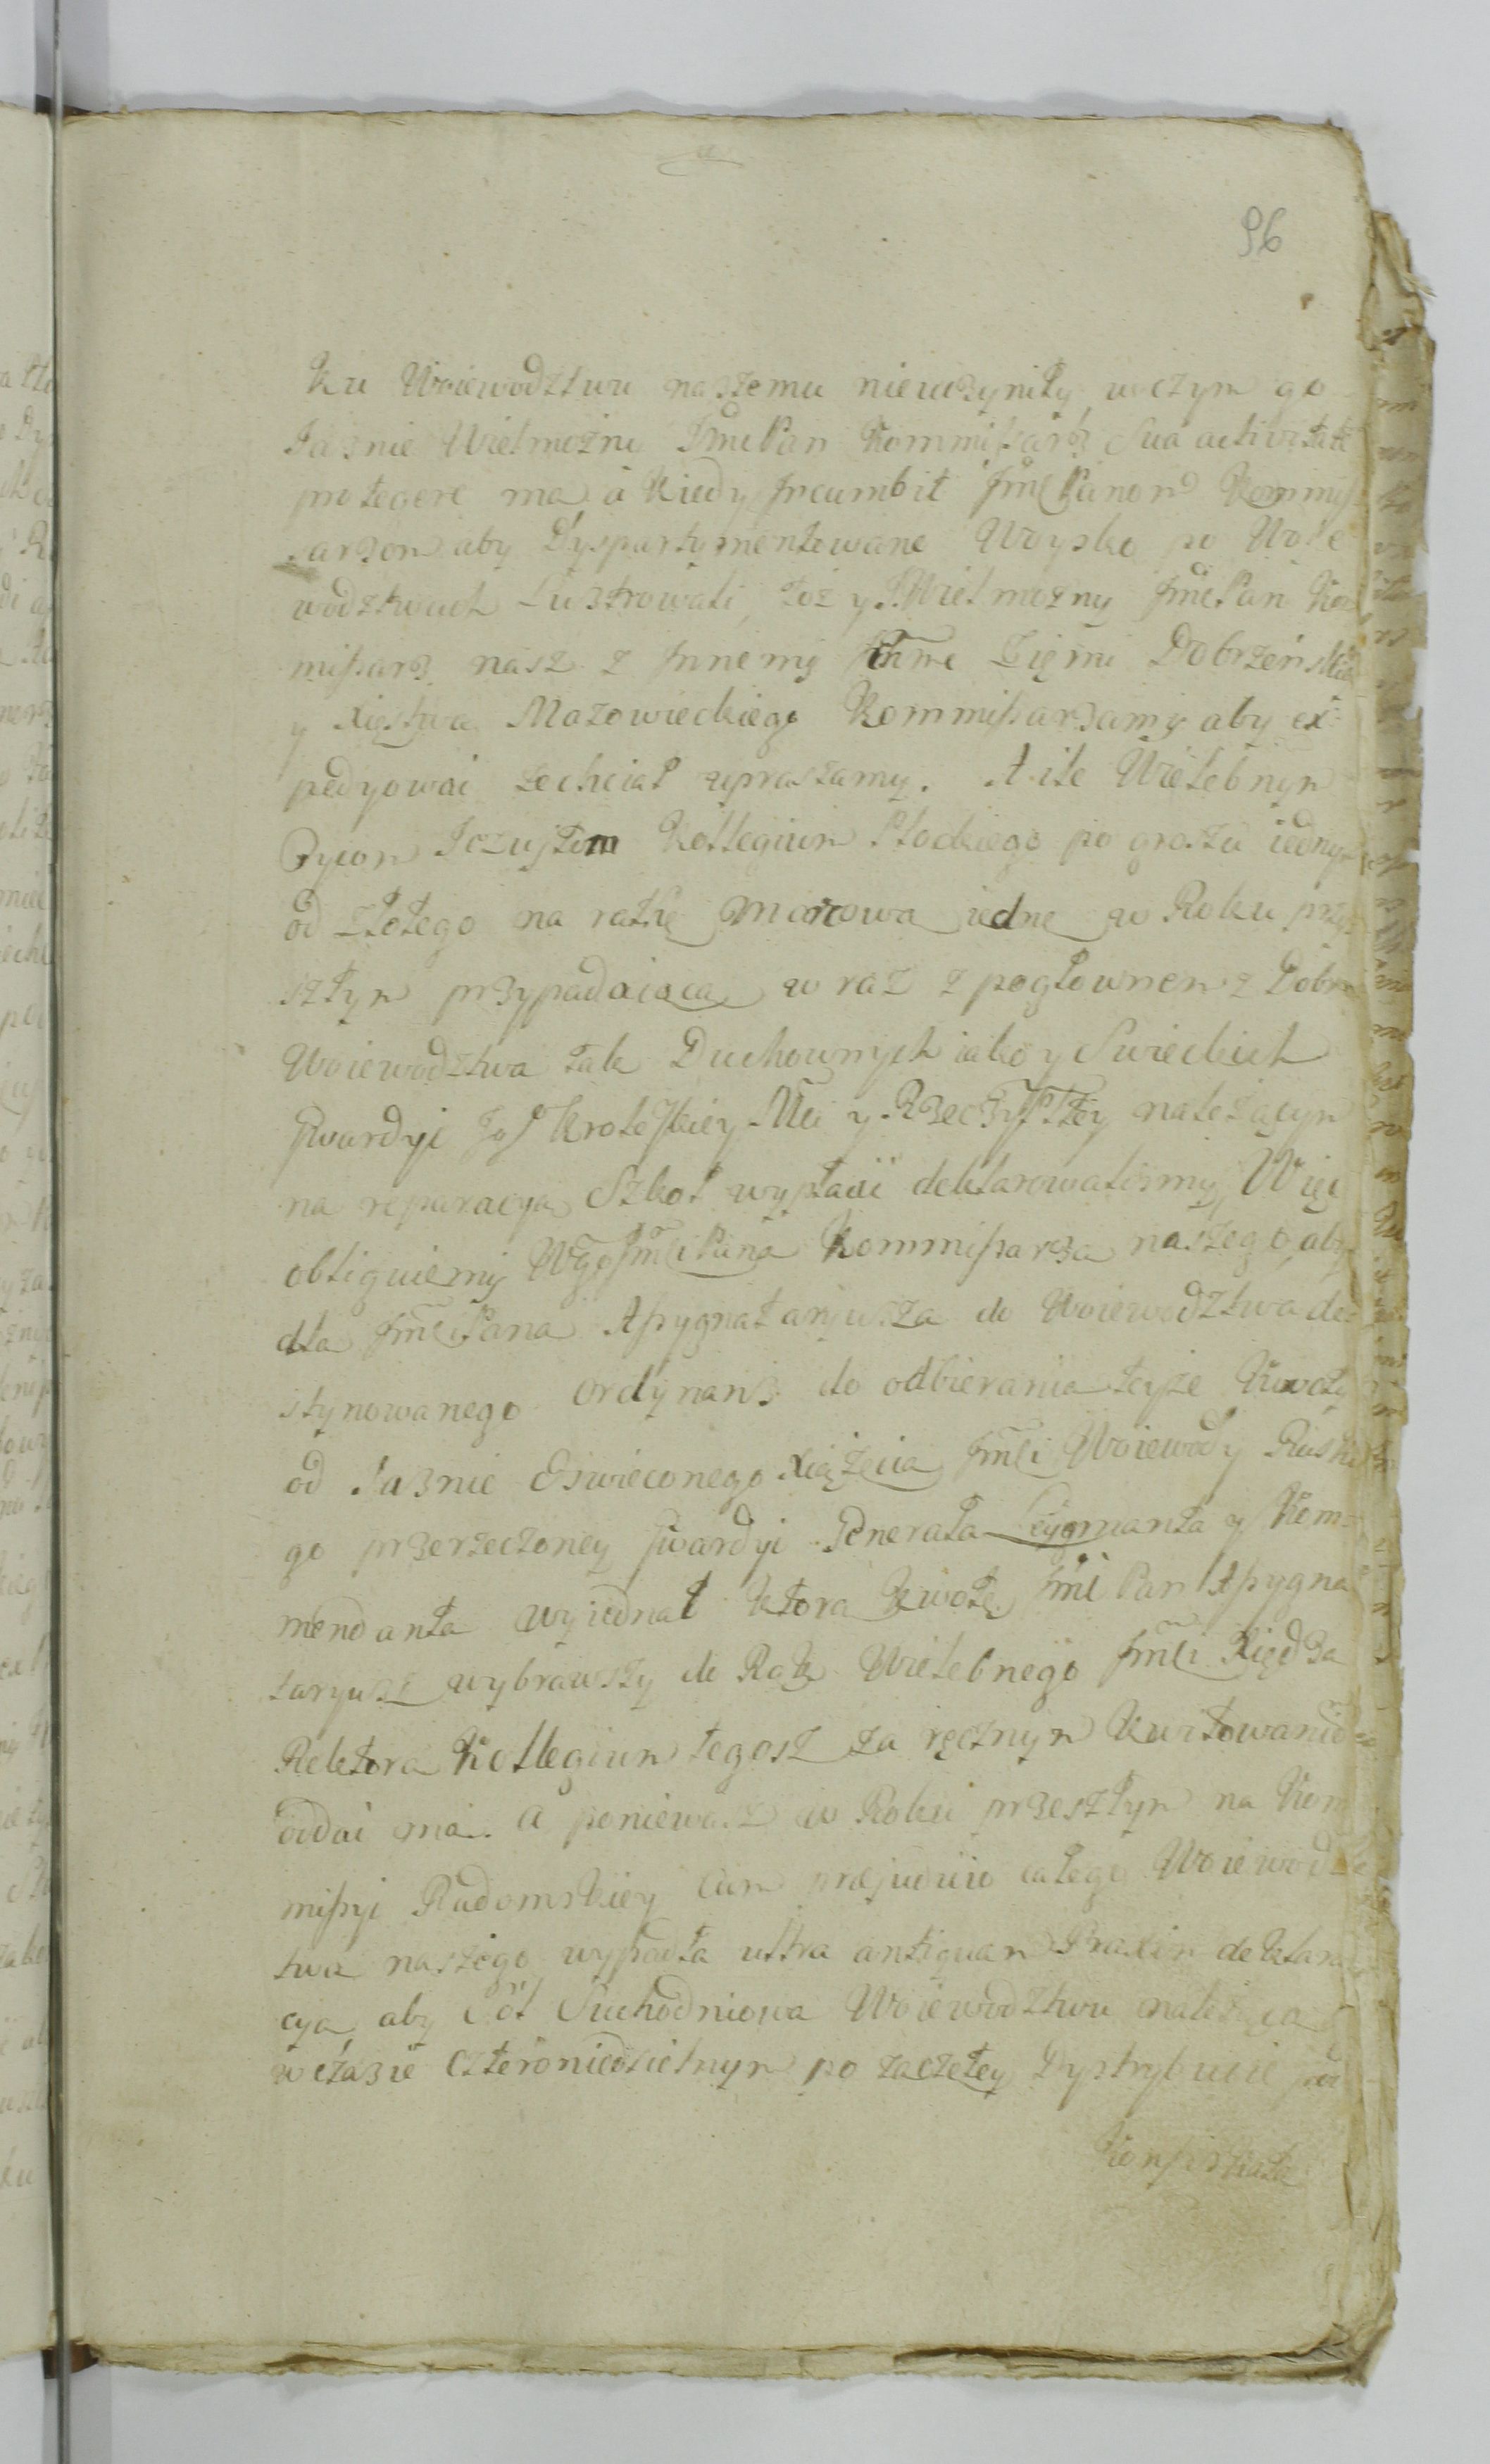 96
ku Woiewodztwu naszemu nieuczyniły, wczym go
Jasnie Wielmożny Jmć Pan Kommissarz Sua activitate
protegere ma, á kiedy Jncumbit Jmć Panom Kommis
sarzom aby Dyspartymentowane Woysko po Woie
wodztwach Lustrowali, toż y J. Wielmożny Jmć Pan Kom
missarz nasz z Jnnemy Ziemi Dobrzeńskiey
y Xięstwa Mazowieckiego Kommissarzamy aby ex=
pedyowac zechciał upraszamy. A ile Wielebnym
Oycom Jezuitom Kollegium Płockiego po groszu iednym
od złotego na ratkę Marcową iednę w Roku przy
szłym przypadaiącą wraz z pogłownem z Dobr
Woiewodztwa tak Duchownych iako y Swieckich
Gwardyi Jo Krolewskiey Mci y Rzeczypltey należącym
na reparacyą Szkoł wypłacić deklarowalismy, Więc
obliguiemy Wgo Jmci Pana Kommissarza naszego, aby
dla Jmci Pana Assygnataryusza do Woiewodztwa de=
stynowanego ordynans do odbierania teyże kwoty
od Jasnie Oswieconego Xiążęcia Jmci Woiewody Ruskie
go przerzeczoney Gwardyi Generała Leytnanta y Kom=
mendanta wyiednał ktorą kwotę Jmć Pan Assygna
taryusz wybrawszy do Rąk Wielebnego Jmci Xiędza
Rektora Kollegium tegosz za ręcznym kwitowaniem
oddac ma. A poniewasz w Roku przeszłym na Kom
missyi Radomskiey cum præjudicio całego Woiewodz
twa naszego wypadła ultra antiquam Praxim deklara
cya, aby Sól Suchedniowa Woiewodztwu należąca
w czasie czteroniedzielnym po zaczętey Dystrybucie pod
konfiskatą